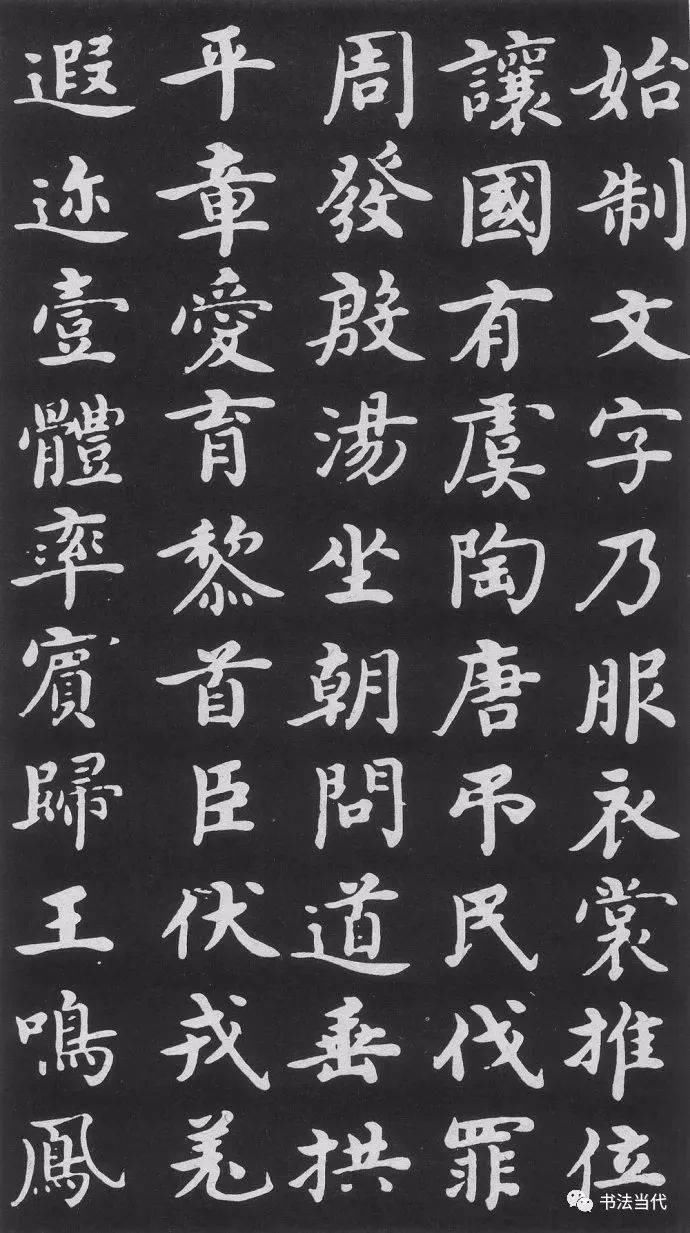 始制文字乃服衣裳推位
讓國有虞陶唐吊民伐罪
周發殷湯坐朝問道垂拱
平章愛育黎首臣伏戎羌
遐迩壹體率賓歸王鳴鳳
书法当代